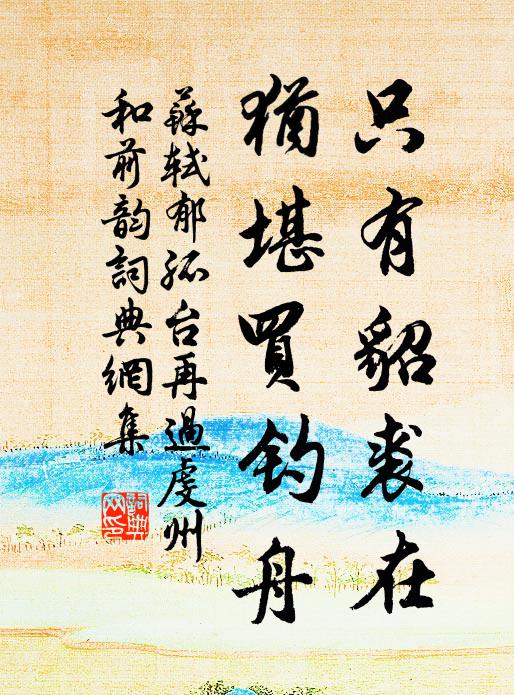 只有貂裘在
猶堪買釣舟
蘇軾郁孤台再過虔州
和前韵詞典網集